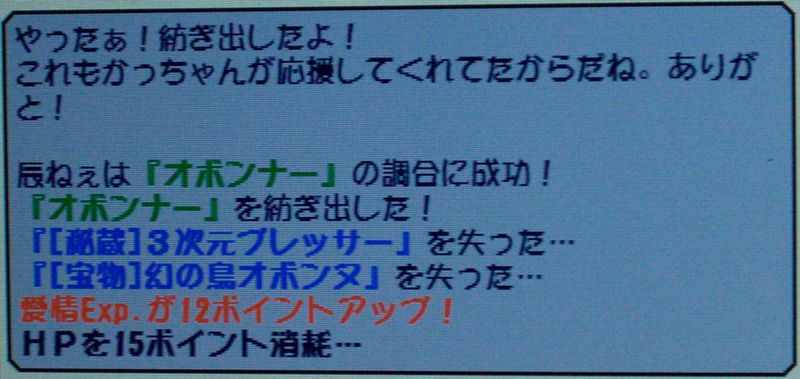 やったぁ！紡ぎ出したよ！
これもかっちゃんが応援してくれてたからだね。ありが
と！
辰ねぇは『オボンナー』の調合に成功！
『オボンナー』を紡ぎ出した！
『[秘蔵]３次元プレッサー』を失った…
『[宝物]幻の鳥オボンヌ』を失った…
愛情Exp.が12ポイントアップ！
ＨＰを15ポイント消耗…